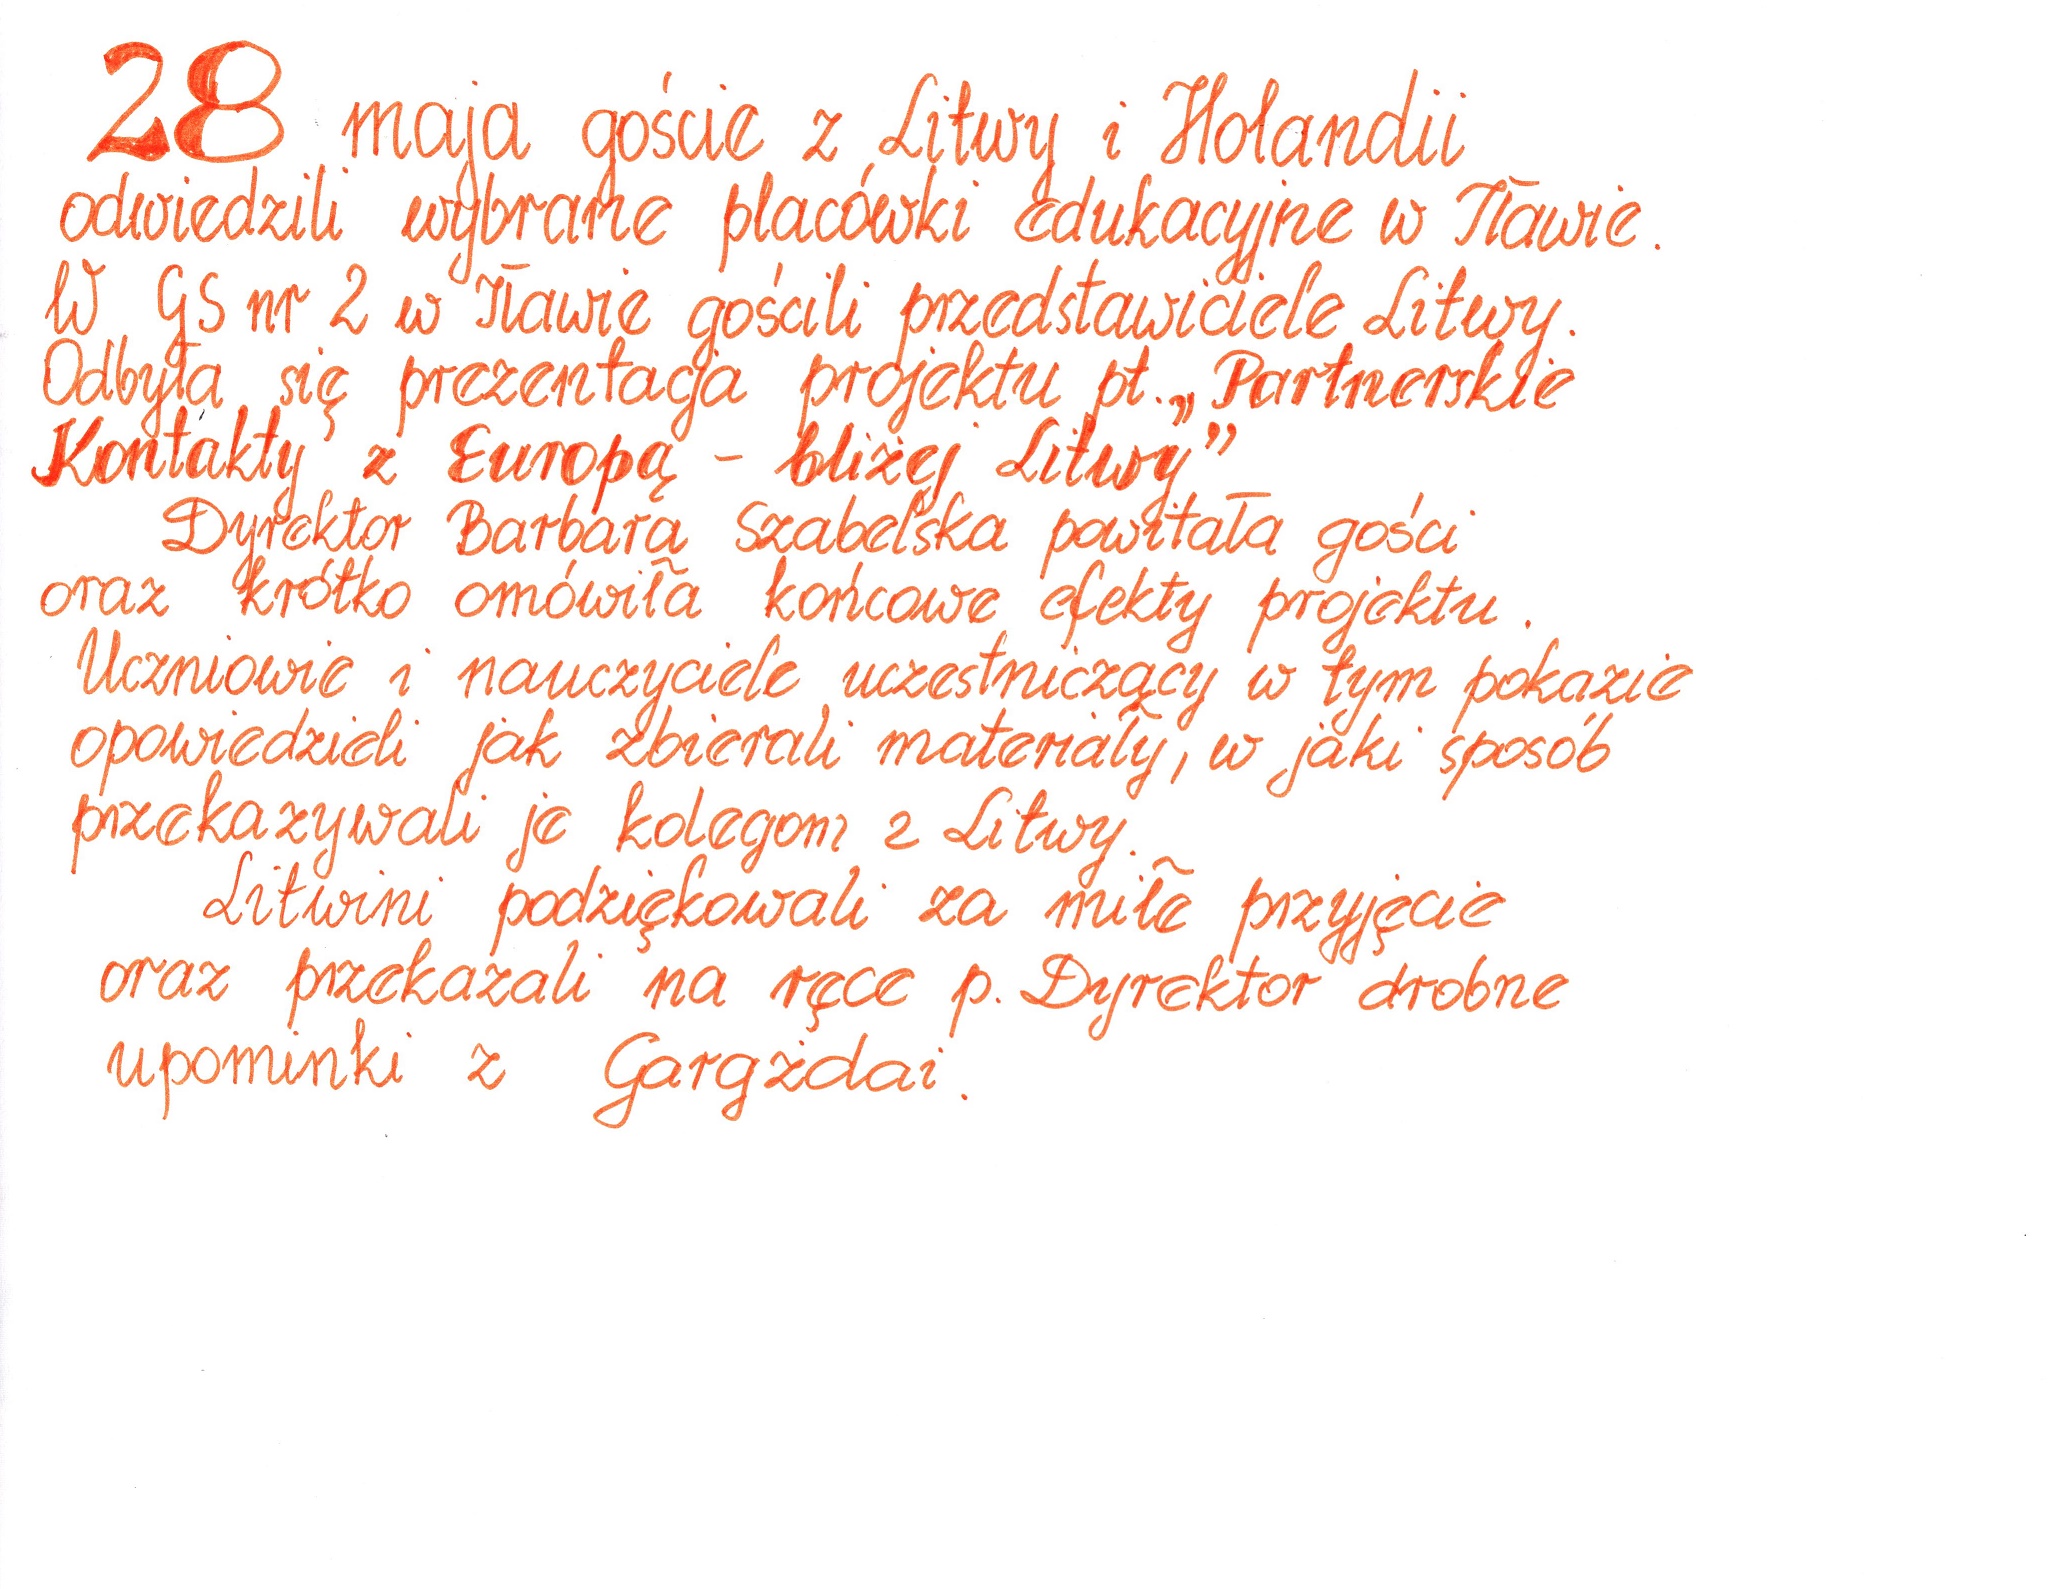 28 maja goście z Litwy i Holandii
odwiedzili wybrane placówki edukacyjne w Iławie.
W GS nr 2 w Iławie gościli przedstawiciele Litwy.
Odbyła się prezentacja projektu pt. „Partnerskie
Kontakty z Europą - bliżej Litwy”
Dyrektor Barbara Szabelska powitała gości
oraz krótko omówiła końcowe efekty projektu.
Uczniowie i nauczyciele uczestniczący w tym pokazie
opowiedzieli jak zbierali materiały, w jaki sposób
przekazywali je kolegom z Litwy.
Litwini podziękowali za miłe przyjęcie
oraz przekazali na ręce p. Dyrektor drobne
upominki z Gargżdai.